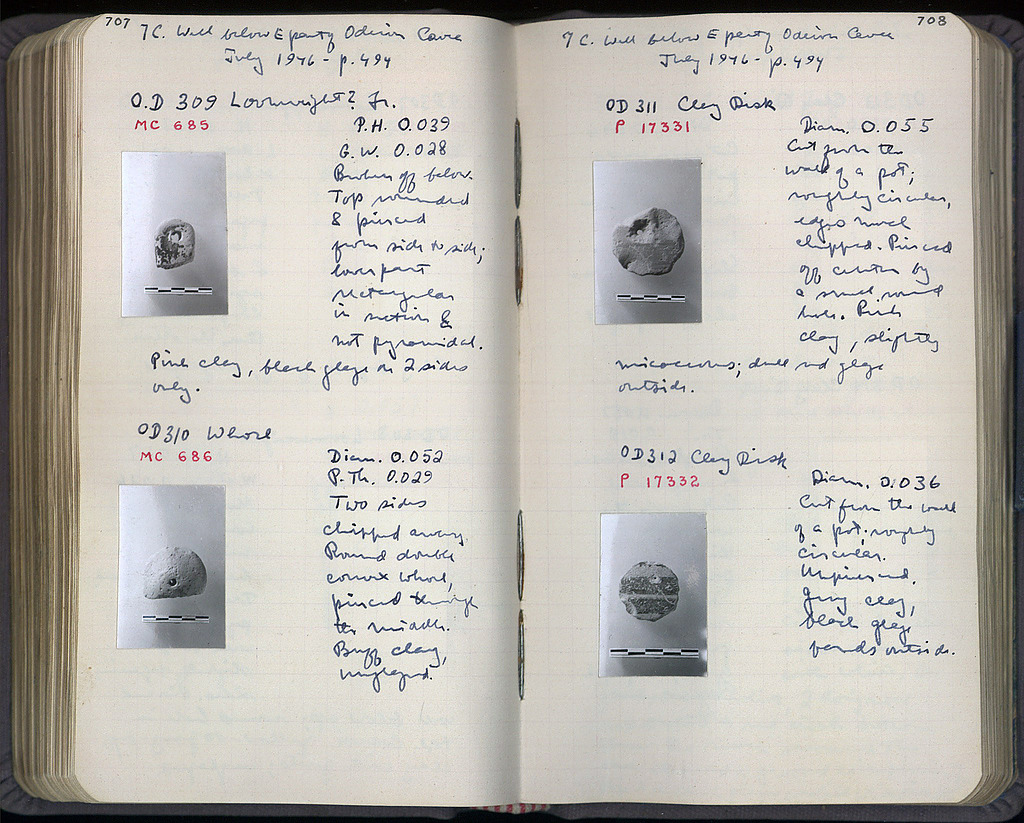 707
7 C. Well below E part of Odeion Cavea
July 1946 - p. 494
O.D 309 Loomweight? Fr.
MC 685
P.H. 0.039
G.W. 0.028
Broken off below.
Top rounded
& pierced
from side to side;
lower part
rectangular
in section &
not pyramidal.
Pink clay, black glaze on 2 sides
only.
OD 310 Whorl
MC 686
Diam. 0.052
P. Th. 0.029
Two sides
chipped away.
Round double
convex whorl,
pierced through
the middle.
Buff clay,
unglazed.
708
7 C. Well below E part of Odeion Cavea
July 1946 - p. 494
OD 311 Clay Disk
P 17331
Diam. 0.055
Cut from the
wall of a pot;
roughly circular,
edges much
chipped. Pierced
off center by
a small round
hole. Pink
clay, slightly
micaceous; dull red glaze
outside.
OD 312 Clay Disk
P 17332
Diam. 0.036
Cut from the wall
of a pot; roughly
circular.
Unpierced.
Gray clay,
black glaze
bands outside.